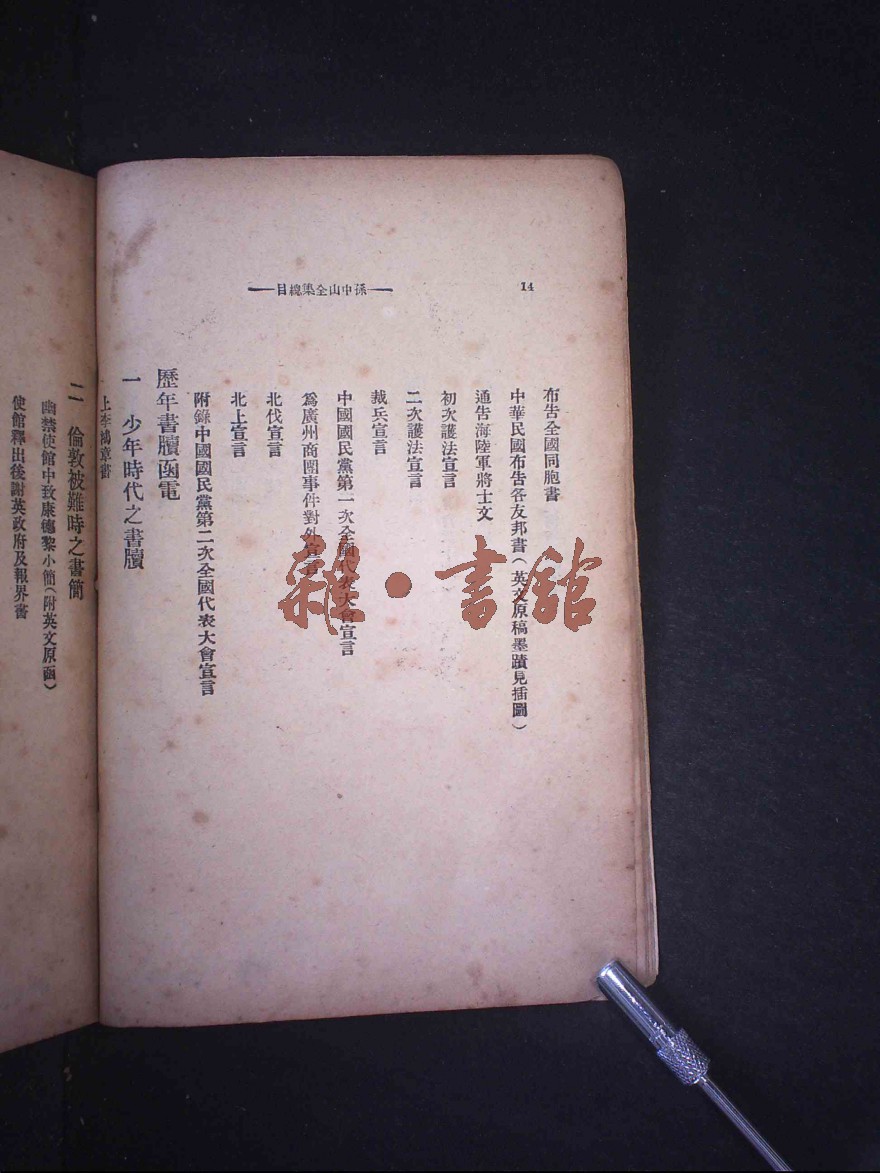 14
——孫中山全集總目——
布告全國同胞書
中華民國布告各友邦書(英文原稿墨蹟見插圖)
通告海陸軍將士文
初次護法宣言
二次護法宣言
裁兵宣言
中國國民黨第一次全國代表大會宣言
為廣州商團事件對外宣言
北伐宣言
北上宣言
附錄中國國民黨第二次全國代表大會宣言
歷年書牘函電
一 少年時代之書牘
上李鴻章書
二 倫敦被難時之書簡
幽禁使館中致康德黎小簡(附英文原函)
使館釋出後謝英政府及報界書
雜·書館